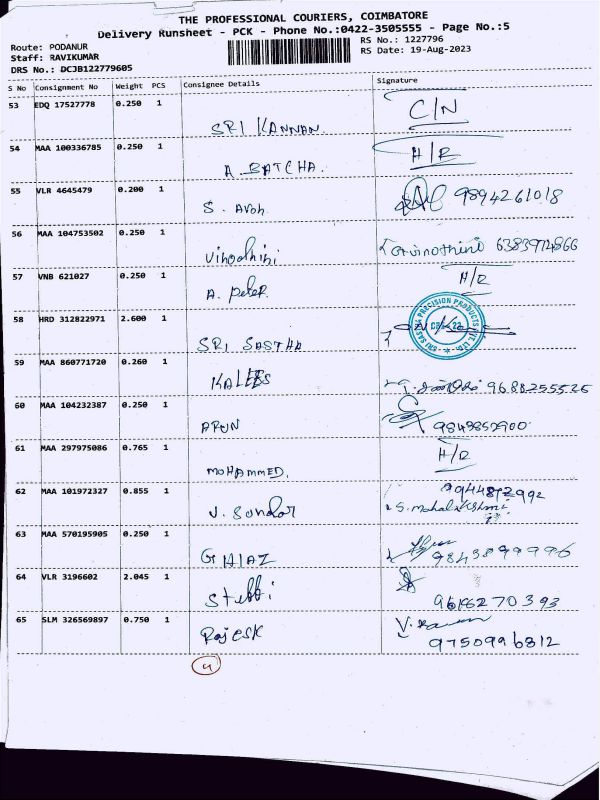 THE PROFESSIONAL COURIERS, COIMBATORE
Delivery Runsheet - PCK - Phone No.:0422-3505555 - Page No.:5
Route: PODANUR
RS No.: 1227796
Staff: RAVIKUMAR
RS Date: 19-Aug-2023
DRS No.: DCJB122779605
S No Consignment No Weight PCS Consignee Details Signature
53 EDQ 17527778 0.250 1 SRI KANNAN C/N
54 MAA 100336785 0.250 1 A. BATCHA. H/R
55 VLR 4645479 0.200 1 S. 9894261018
56 MAA 104753502 0.250 1 Vinodhini
57 VNB 621027 0.250 1 A. Peter. H/R
58 HRD 312822971 2.600 1 SRI SASTHA SRI SASTHA PRECISION PRODUCTS PVT. LTD.
59 MAA 860771720 0.260 1 9688255525
60 MAA 104232387 0.250 1 ARUN 9849852900
61 MAA 297975086 0.765 1 MOHAMMED. H/R
62 MAA 101972327 0.855 1 V. Sundar S. Mahalakshmi
63 MAA 570195905 0.250 1 GHIAZ
64 VLR 3196602 2.045 1 Steffi
65 SLM 326569897 0.750 1 Rajesk 9750996812
4